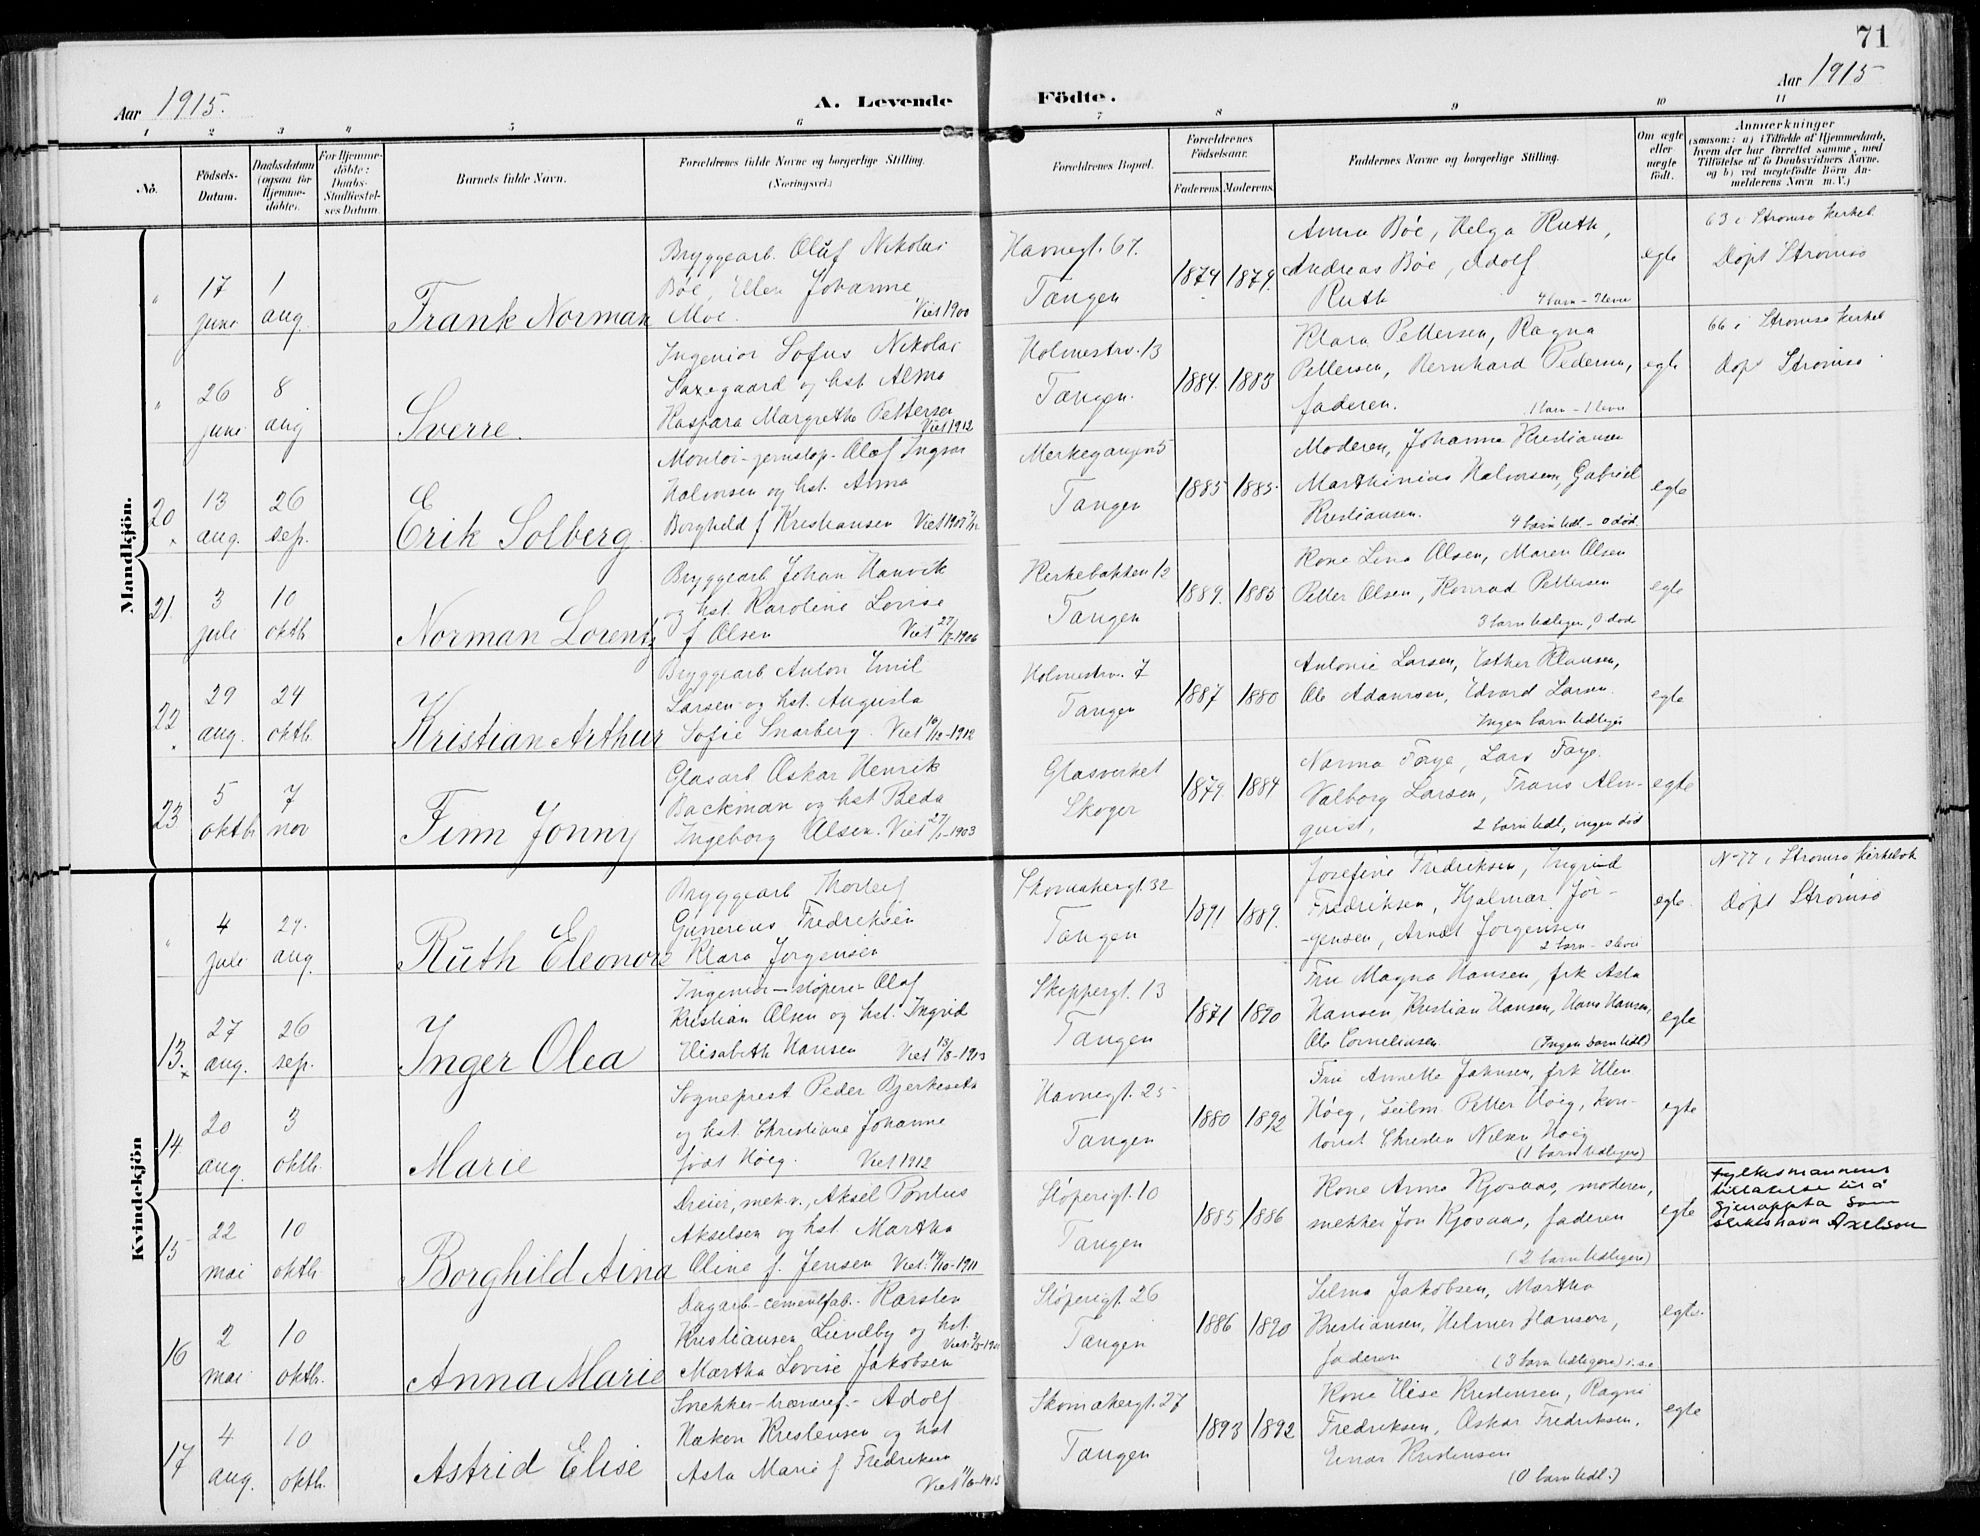 71
Aar 1915.
A. Levende Födte.
Aar 1915
1 2 3 4 5 6 7 8 9 10 11
No.
Födsels-Datum.
Daabsdatum (ogsaa for Hjemme-döbte).
For Hjemme-döbte: Daabs-Stadfæstel-ses Datum
Barnets fulde Navn.
Forældrenes fulde Navne og borgerlige Stilling.
(Næringsvei.)
Forældrenes Bopæl.
Forældrenes Födselsaar.
Faderens. Moderens.
Faddernes Navne og borgerlige Stilling.
Om ægte eller uægte födt.
Anmærkninger
(saasom: a) i Tilfælde af Hjemmedaab,
hvem der har forrettet samme, med
Tilföielse af to Daabsvidners Navne.
og b) ved uægtefödte Börn An-
melderens Navn m. V.)
Mandkjön.
" 17 june 1 aug. Frank Norman
Bryggearb. Oluf Nikolai
Böe, Ellen Johanne
Moe. Viet 1900
Havnegt. 67.
Tangen
1874 1879.
Anna Böe, Helga Ruth,
Andreas Böe, Adolf
Ruth 4 barn -
egte
63 i Strömsö Kirkeb
Döpt Strömsö
" 26 june 8 aug Sverre.
Ingeniör Sofus Nikolai
Saxegaard og hst Alma
Kaspara Margrethe Pettersen
Viet 1912
Holmestrv. 13
Tangen.
1884. 1883
Klara Pettersen, Ragna
Pettersen, Bernhard Pedersen,
faderen. 1 barn - 1 leve
egte
66 i Strömsö Kirkeb
Döpt Strömsö
20 13 aug. 26 sep. Erik Solberg
Montör-jernstöp- Olaf Ingvar
Halvorsen og hst. Anna
Borghild f Kristiansen Viet 1907
Merkegangen 5
Tangen
1885 1885
Moderen, Johanne Kristiansen
Marthinius Halvorsen, Gabriel
Kristiansen. 4 barn tidl - 0 död
egte
21. 3 juli 10 oktb Norman Lorentz
Bryggearb Johan Hanvik
og hst. Karoline Lovise
f Olsen Viet 27/7-1906
Kirkebakken 12
Tangen
1889. 1885
Kone Lina Olsen, Maren Olsen
Petter Olsen, Konrad Pettersen
3 barn tidligere, 0 död
egte
22 29 aug. 24 oktb. Kristian Arthur
Bryggearb Anton Emil
Larsen og hst. Augusta
Sofie Snarberg. Viet 10/12-1912
Holmestrv. 7
Tangen
1887 1880
Antonie Larsen, Esther Klausen,
Ole Adamsen, Edvard Larsen.
Ingen barn tidligere
egte
23 5 oktb 7 nov Finn Jonny
Glasarb Oskar Henrik
Backman og hst Beda
Ingeborg Olsen. Viet 27/1-1903
Glasverket
Skoger
1879. 1884
Nanna Foye, Lars Foye.
Valborg Larsen, Frans Alm-
quist, 2 barn tidl, ingen död
egte
Kvindekjön
" 4 juli 29. aug. Ruth Eleonore
Bryggearb Thorleif
Gunerius Fredriksen
Klara Jörgensen
Skomakergt. 32
Tangen
1891 1889.
Josefine Fredriksen, Ingrid
Fredriksen, Hjalmar Jör-
gensen, Arndt Jörgensen
2 barn -
egte.
No 77 i Strömsö Kirkebok
Döpt Strömsö
13. 27 aug. 26 sep. Inger Olea
Ingeniör - stöperi- Olaf
Kristian Olsen og hst. Ingrid
Elisabeth Hansen Viet
Skippergt. 13
Tangen
1871 1890
Fru Magna Hansen, frk Asta
Hansen Kristian Hansen, Hans Hansen,
Ole Corneliusen (Ingen barn tidl)
egte
14 20 aug. 3 oktb. Marie
Sogneprest Peder Bjerkeseth
og hst. Christiane Johanne
född Höeg. Viet 1912
Havnegt. 25
Tangen
1880 1892
Fru Annette Jahnsen, frk Ellen
Höeg, Petter Höeg, kon-
torist Christen Nilsen Höeg
(1 barn tidligere)
egte
15 22 mai 10 oktb Borghild Aina
Dreier, mek. v., Aksel Pontus
Akselsen og hst Martha
Oline f. Jensen Viet -1911
Stöperigt. 10
Tangen
1885 1886
Kone Anna Kjosaas, moderen,
snekker Jon Kjosaas, faderen
(2 barn tidligere)
egte
Fylkesmannens
tillatelse til å
gjenoppta som
slektsnavn Axelson
16 2 mai 10 oktb. Anna Marie
Dagarb-cementfab.- Karsten
Kristiansen Lundby og hst.
Martha Lovise Jakobsen
Stöperigt. 26
Tangen
1886 1890
Selma Jakobsen, Martha
Kristiansen, Helmer Hansen,
faderen (3 barn tidligere)
egte.
17 4 aug. 10 oktb. Astrid Elise
Snekker-trævaref.- Adolf
Håkon Kristensen og hst
Asta Marie f Fredriksen
Viet -1915
Skomakergt. 27
Tangen
1893 1892
Kone Elise Kristensen, Ragni
Fredriksen, Oskar Fredriksen,
Einar Kristensen
(0 barn tidl.)
egte